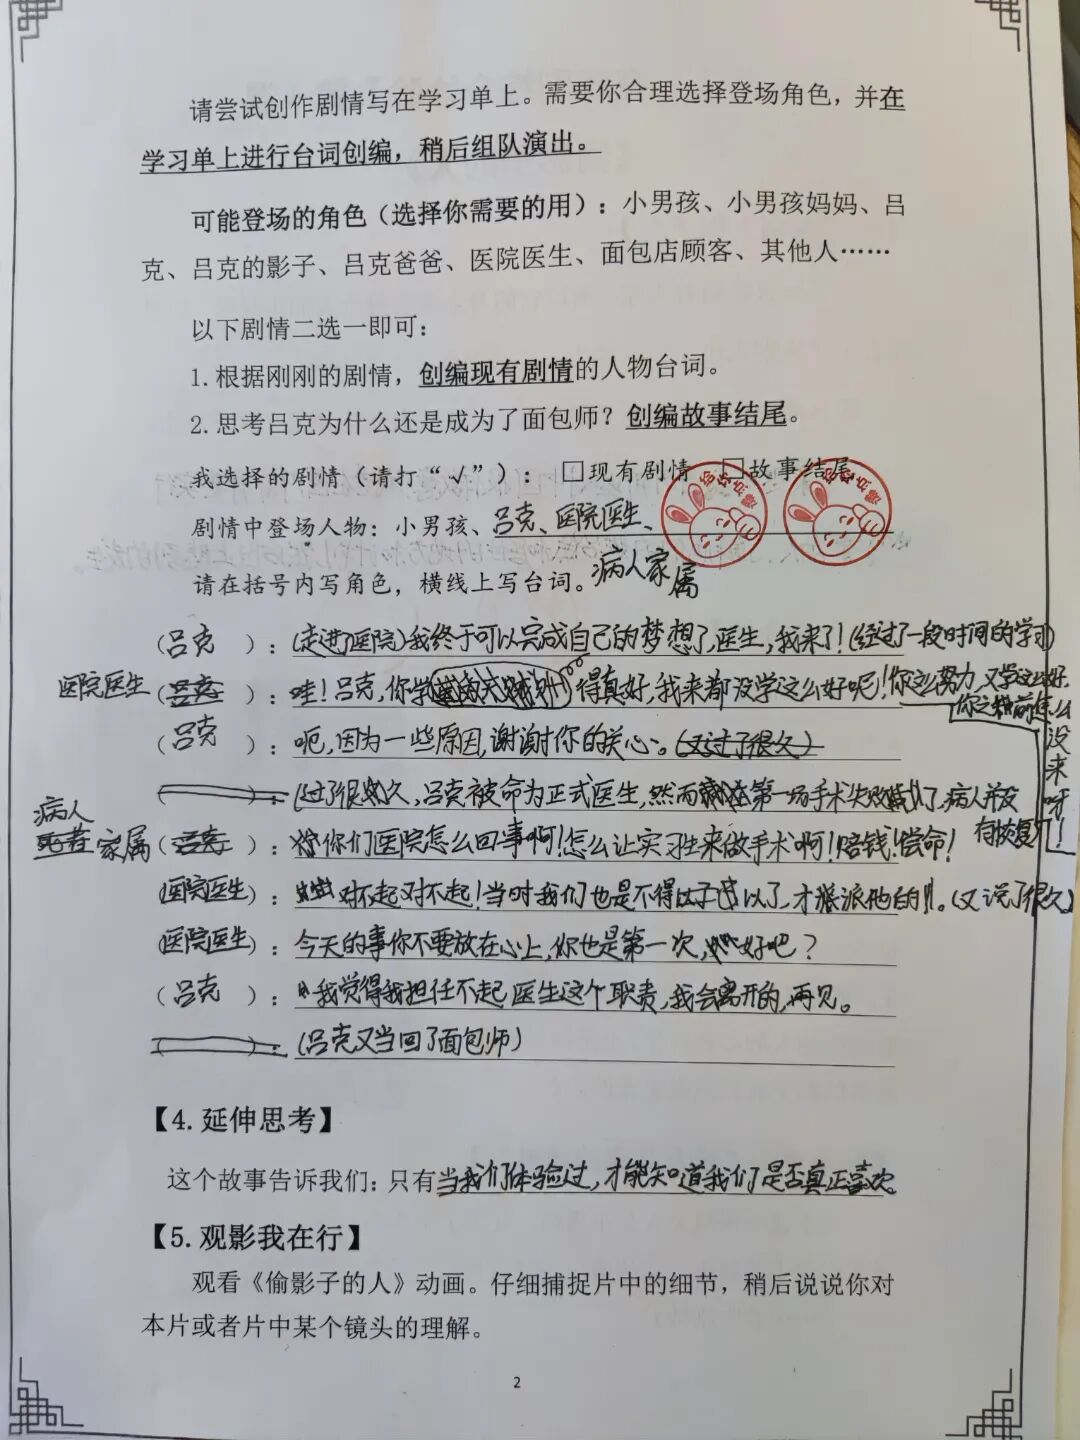 请尝试创作剧情写在学习单上。需要你合理选择登场角色，并在
学习单上进行台词创编，稍后组队演出。
可能登场的角色（选择你需要的用）：小男孩、小男孩妈妈、吕
克、吕克的影子、吕克爸爸、医院医生、面包店顾客、其他人……
以下剧情二选一即可：
1.根据刚刚的剧情，创编现有剧情的人物台词。
2.思考吕克为什么还是成为了面包师？创编故事结尾。
我选择的剧情（请打“√”）：□现有剧情 □故事结尾
剧情中登场人物：小男孩、吕克、医院医生、
病人家属
请在括号内写角色，横线上写台词。
（吕克）：(走进了医院)我终于可以完成自己的梦想了,医生,我来了!(经过了一段时间的学习)
医院医生：哇!吕克,你学得真好,我来都没学这么好呢!你这么努力,又学这么好,
你之前怎么没来呀!
（吕克）：呃,因为一些原因,谢谢你的关心。
(过了很久,吕克被命为正式医生,然而第一场手术失败了,病人并没
有恢复!)
病人家属：你们医院怎么回事啊!怎么让实习生来做手术啊!赔钱!偿命!
（医院医生）：对不起对不起!当时我们也是不得以了,才派他的!。(又说了很久)
（医院医生）：今天的事你不要放在心上,你也是第一次,好吧?
（吕克）：我觉得我担任不起医生这个职责,我会离开的,再见。
(吕克又当回了面包师)
【4.延伸思考】
这个故事告诉我们：只有当我们体验过,才能知道我们是否真正喜欢。
【5.观影我在行】
观看《偷影子的人》动画。仔细捕捉片中的细节，稍后说说你对
本片或者片中某个镜头的理解。
2